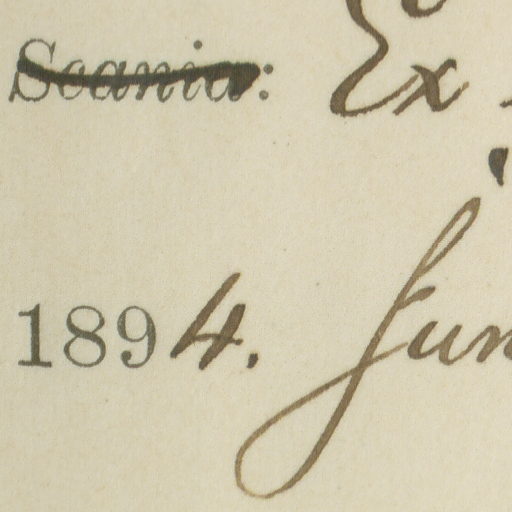 Scania: Ex
1894. Jun